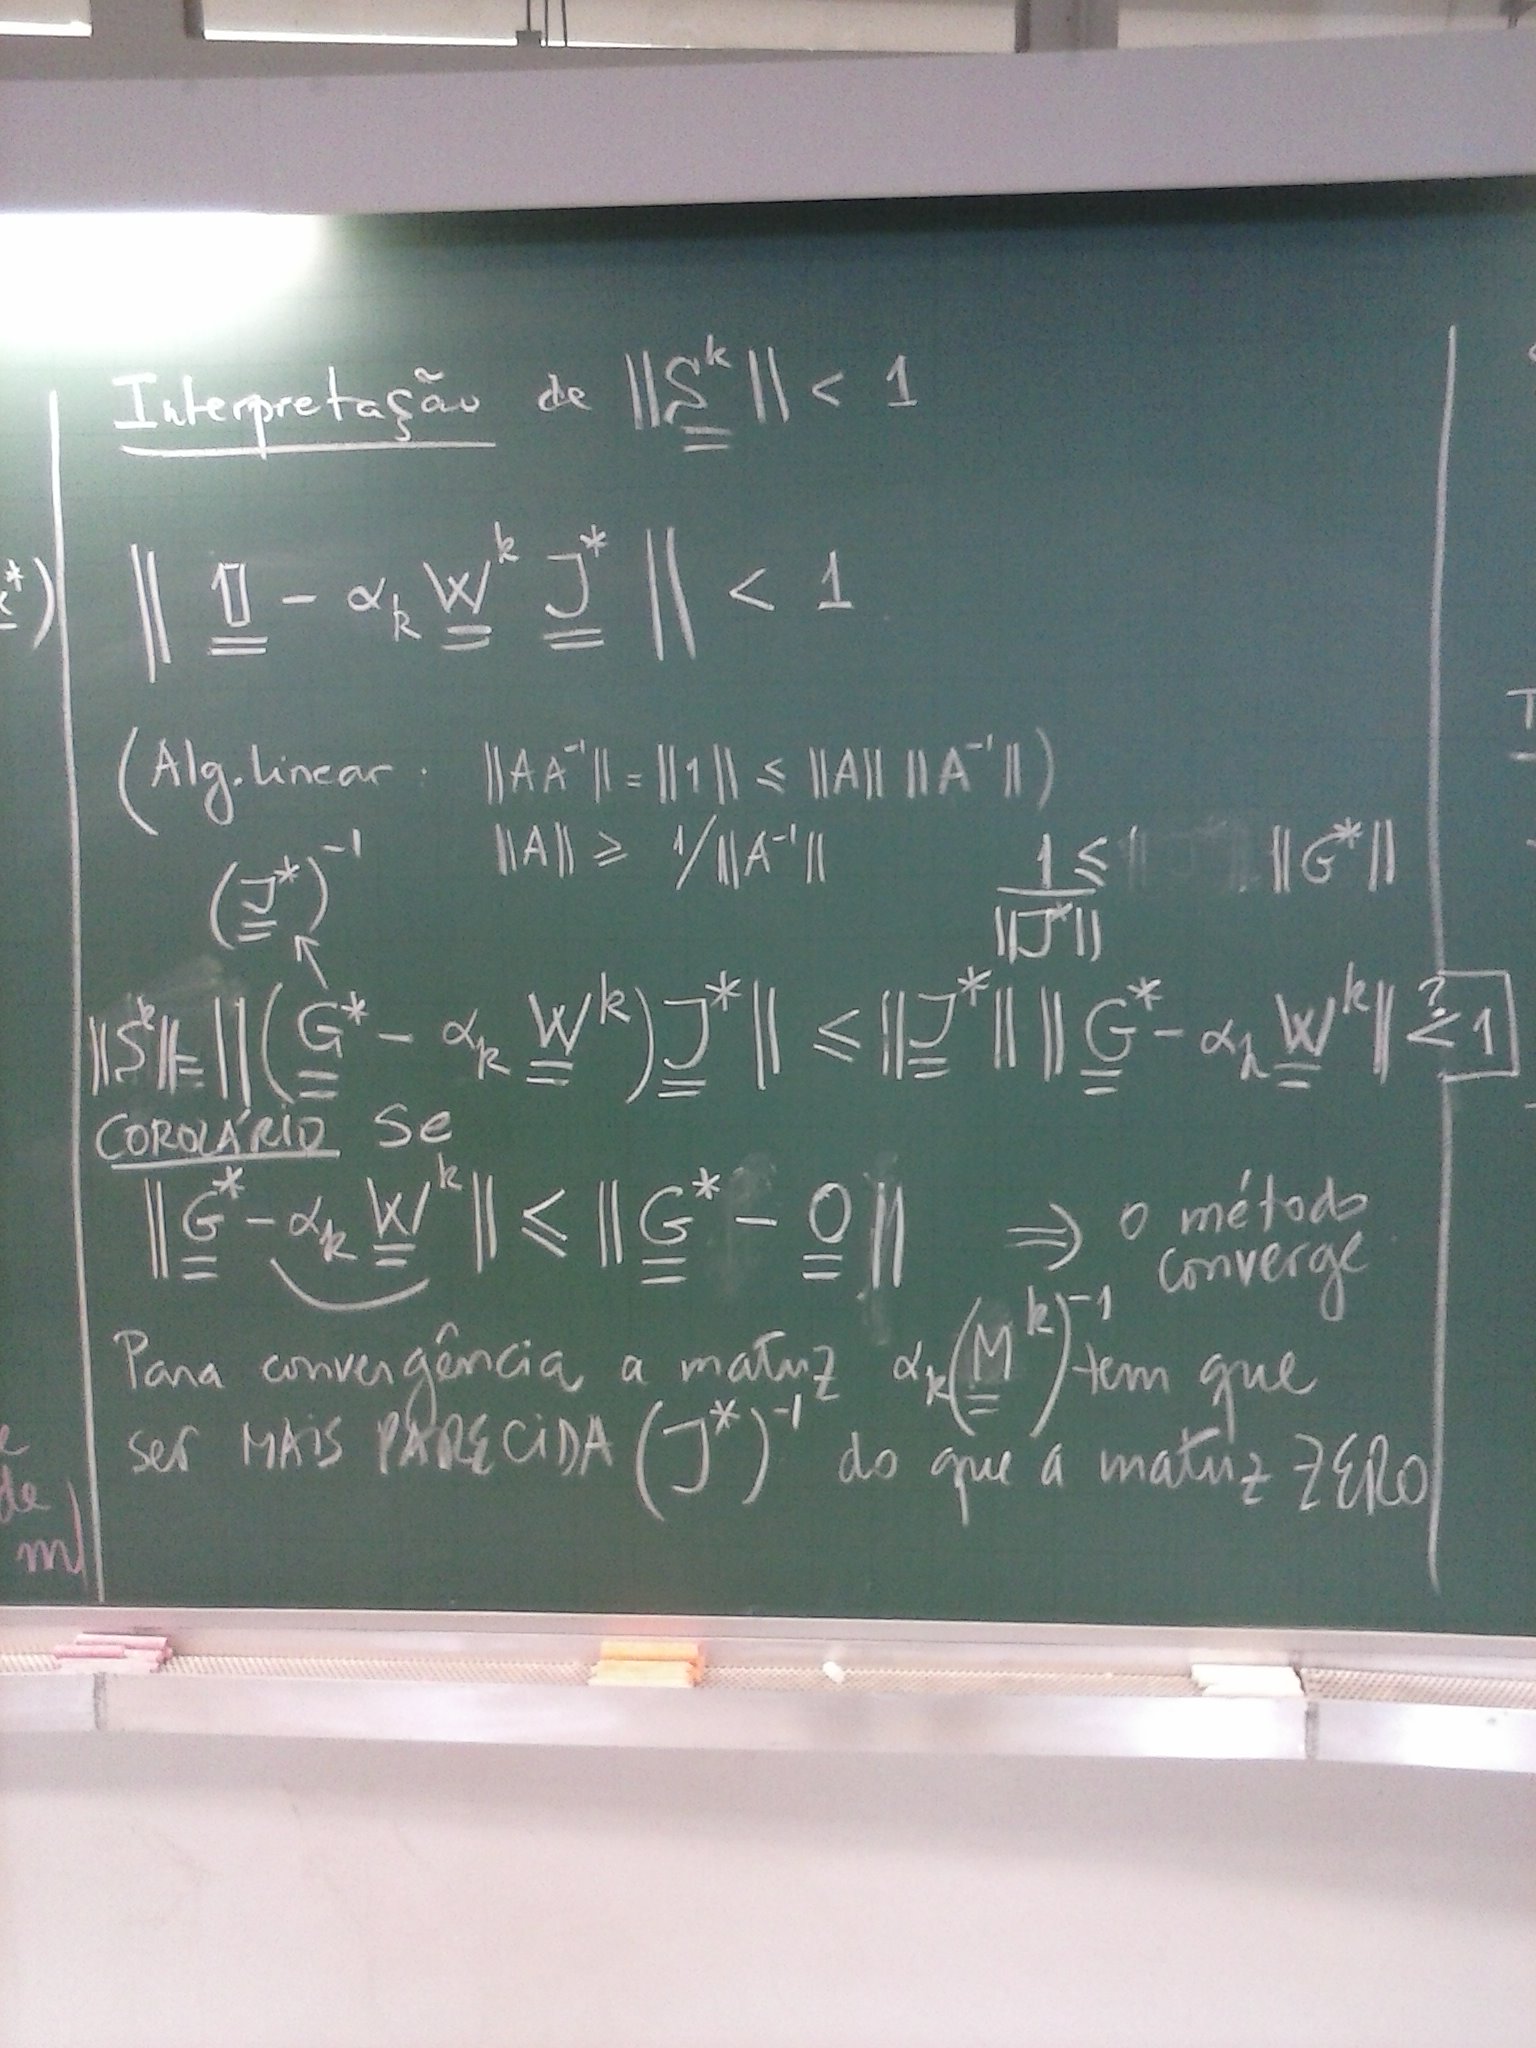 Interpretação de ||S^k|| < 1
x*)
|| 𝟙 - α_k W^k J* || < 1
(Alg. linear: ||AA^-1|| = ||1|| ≤ ||A|| ||A^-1||)
||A|| ≥ 1/||A^-1||
1/||J*|| ≤ ||G*||
(J*)^-1
||S^k|| = ||(G* - α_k W^k) J*|| ≤ ||J*|| ||G* - α_k W^k|| <? 1
COROLÁRIO Se
||G* - α_k W^k|| ≤ ||G* - 0|| ⇒ o método
converge
Para convergência a matriz α_k (M^k)^-1 tem que
ser MAIS PARECIDA (J*)^-1 do que a matriz ZERO
de
m